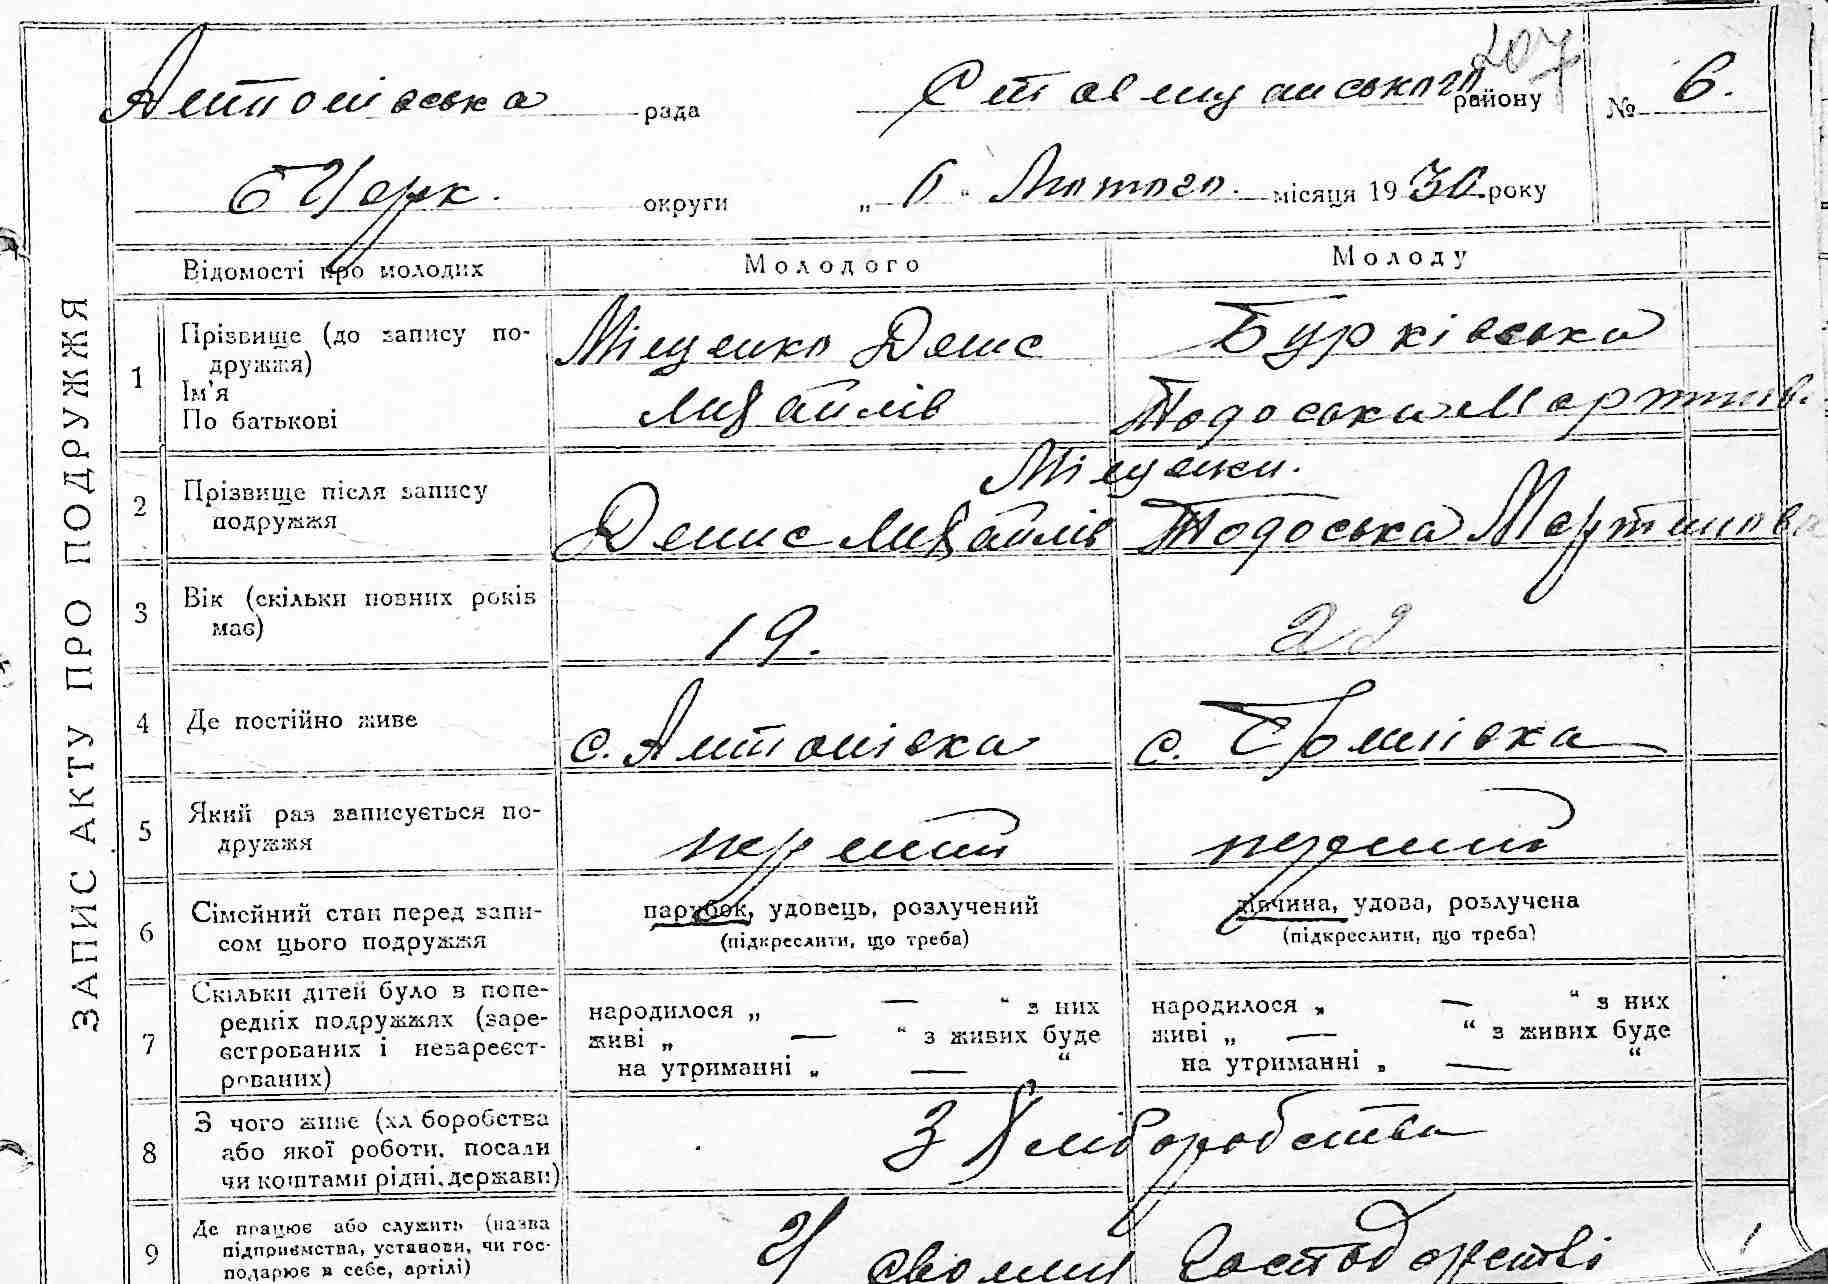 207
Антонівська рада Ставищанського району № 6.
БЦерк. округи „ 6 “ Лютого. місяця 1930 року
ЗАПИС АКТУ ПРО ПОДРУЖЖЯ
Відомості про молодих Молодого Молоду
1 Прізвище (до запису по-
дружжя)
Ім'я
По батькові
Міщенко Денис
Михайлів
Бурківська
Тодоська Мартинів.
2 Прізвище після запису
подружжя
Міщенки.
Денис Михайлів Тодоська Мартинова
3 Вік (скільки повних років
має)
19. 22
4 Де постійно живе с. Антонівка с.
5 Який раз записується по-
дружжя
перший перший
6 Сімейний стан перед запи-
сом цього подружжя
парубок, удовець, розлучений
(підкреслити, що треба)
дівчина, удова, розлучена
(підкреслити, що треба)
7 Скільки дітей було в попе-
редніх подружжях (заре-
єстрованих і незареєст-
рованих)
народилося „ — “ з них
живі „ — “ з живих буде
на утриманні „ — “
народилося „ — “ з них
живі „ — “ з живих буде
на утриманні „ — “
8 З чого живе (хліборобства
або якої роботи, посади
чи коштами рідні, держави)
З Хліборобства
9 Де працює або служить (назва
підприємства, установи, чи гос-
подарює в себе, артілі)
У своїму Господарстві
1